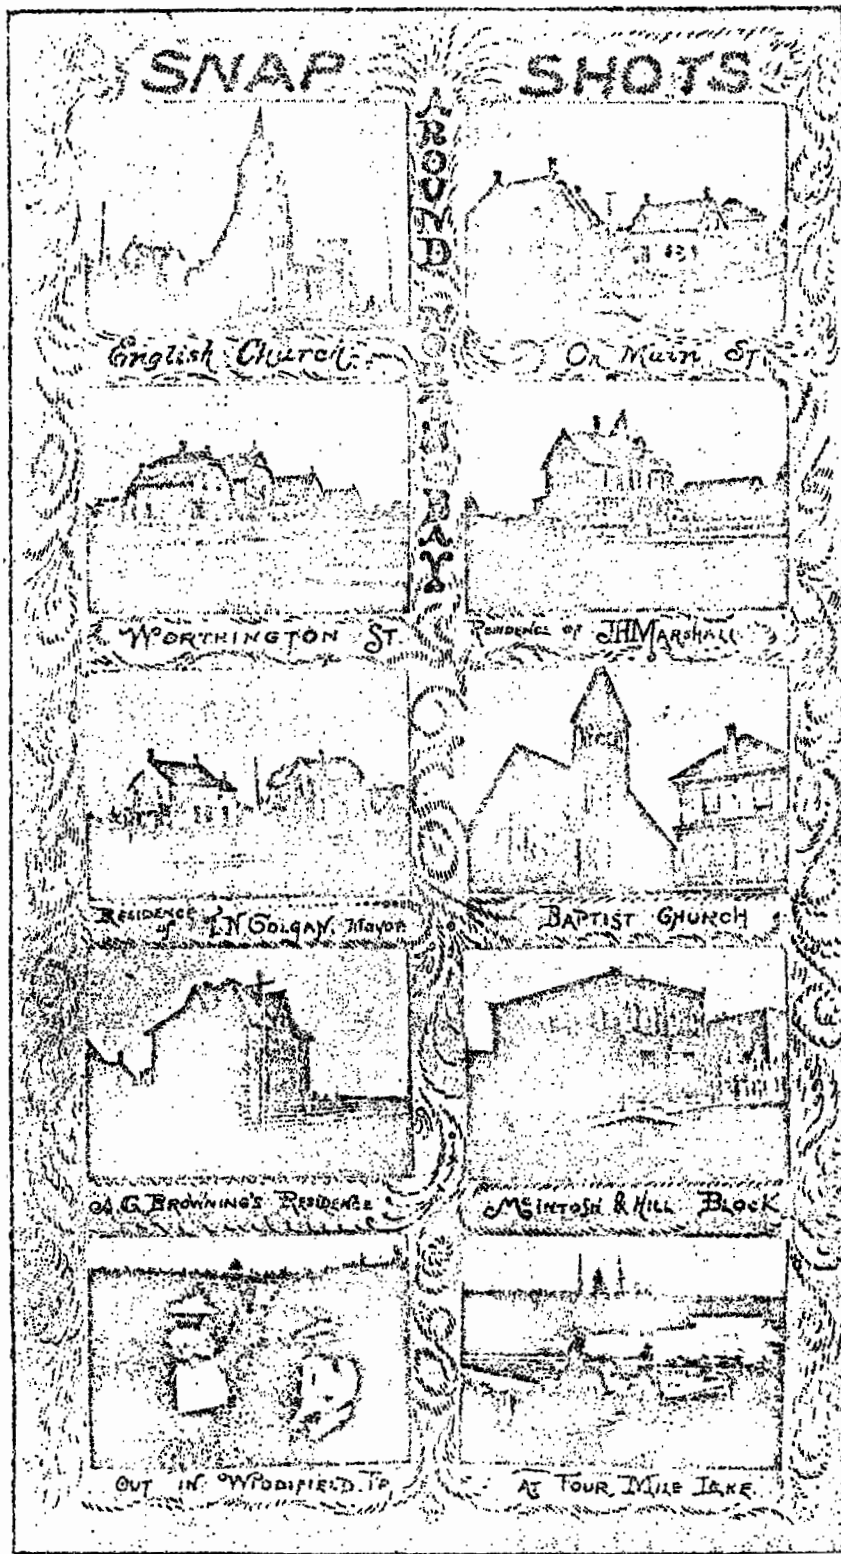 SNAP SHOTS
AROUND NORTH BAY
English Church
On Main St.
WORTHINGTON ST.
RESIDENCE OF J.H.MARSHALL
RESIDENCE of J.N GOLGAN. Mayor.
BAPTIST CHURCH
A.G. BROWNING'S RESIDENCE
McINTOSH & HILL BLOCK
OUT IN WIDDIFIELD. TP.
AT FOUR MILE LAKE